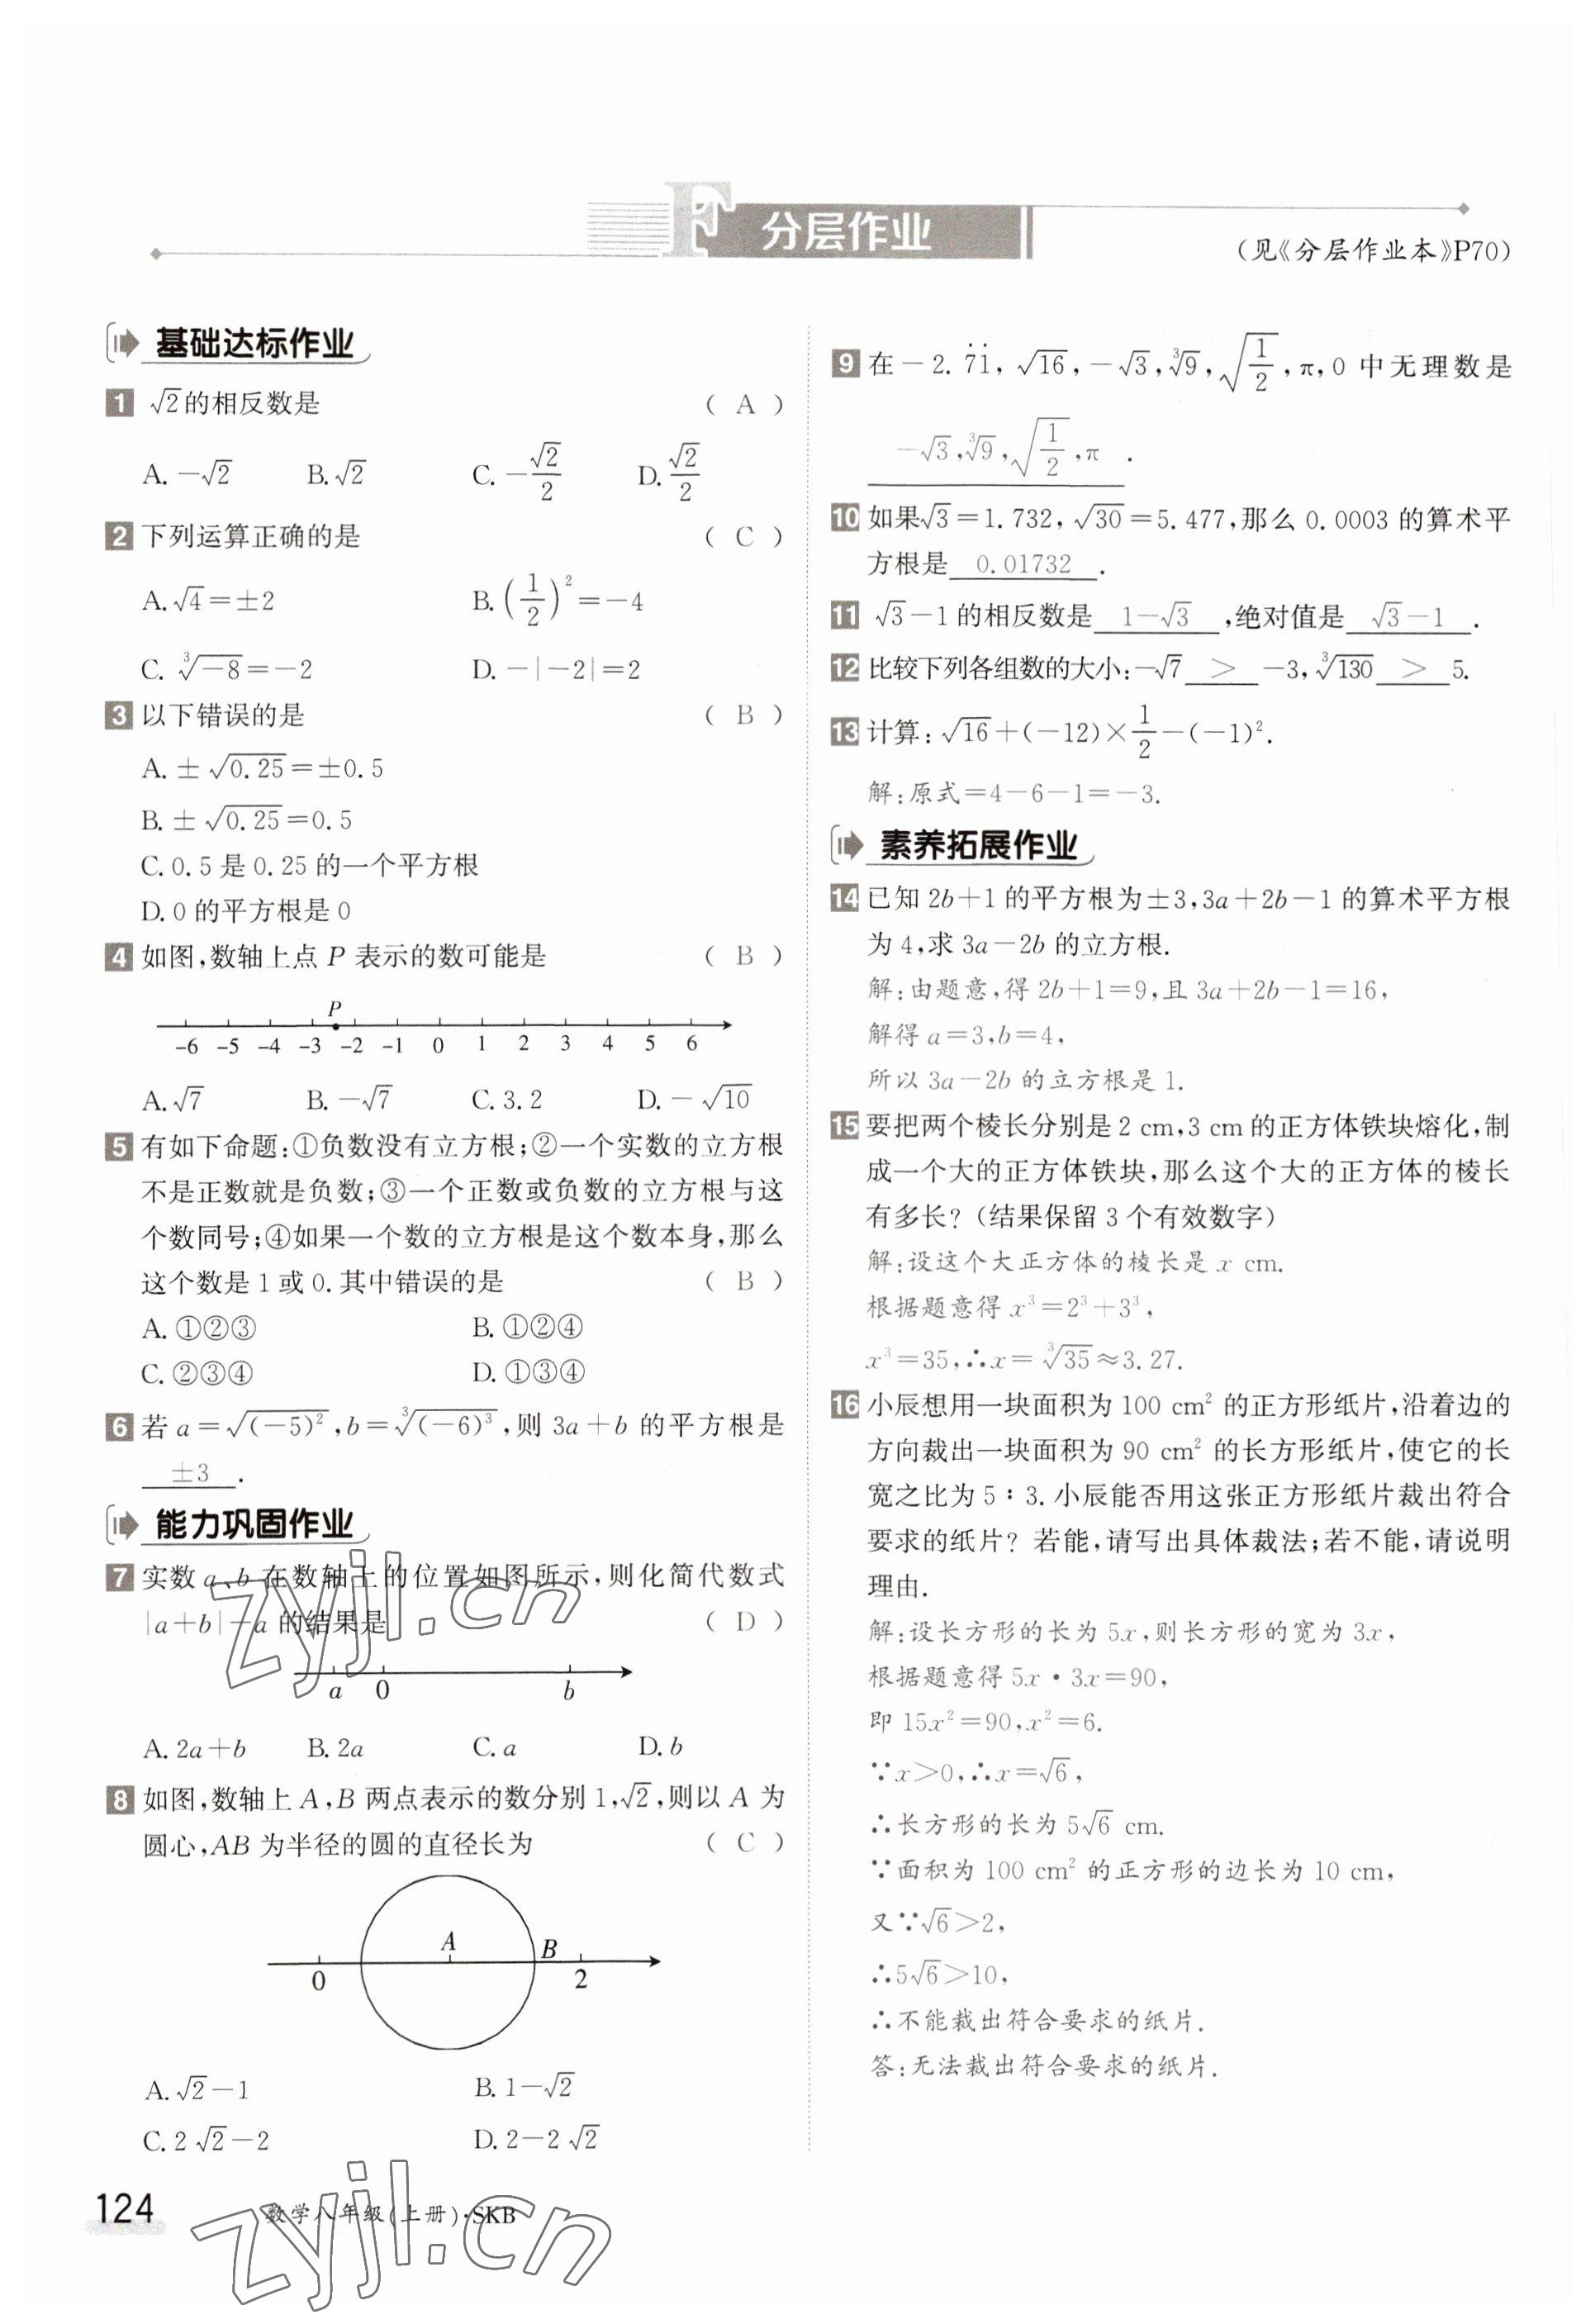 F 分层作业
(见《分层作业本》P70)
基础达标作业
1 √2的相反数是 ( A )
A. -√2 B. √2 C. -√2/2 D. √2/2
2 下列运算正确的是 ( C )
A. √4=±2 B. (1/2)²=-4
C. ³√-8=-2 D. -|-2|=2
3 以下错误的是 ( B )
A. ±√0.25=±0.5
B. ±√0.25=0.5
C. 0.5是0.25的一个平方根
D. 0的平方根是0
4 如图,数轴上点P表示的数可能是 ( B )
P
-6 -5 -4 -3 -2 -1 0 1 2 3 4 5 6
A. √7 B. -√7 C. 3.2 D. -√10
5 有如下命题:①负数没有立方根;②一个实数的立方根
不是正数就是负数;③一个正数或负数的立方根与这
个数同号;④如果一个数的立方根是这个数本身,那么
这个数是1或0.其中错误的是 ( B )
A. ①②③ B. ①②④
C. ②③④ D. ①③④
6 若a=√(-5)²,b=³√(-6)³,则3a+b的平方根是
±3 .
能力巩固作业
7 实数a、b在数轴上的位置如图所示,则化简代数式
|a+b|-a的结果是 ( D )
a 0 b
A. 2a+b B. 2a C. a D. b
8 如图,数轴上A,B两点表示的数分别1,√2,则以A为
圆心,AB为半径的圆的直径长为 ( C )
A B
0 2
A. √2-1 B. 1-√2
C. 2√2-2 D. 2-2√2
124 数学八年级(上册)·SKB
9 在-2.7̇1̇,√16,-√3,³√9,√(1/2),π,0中无理数是
-√3,³√9,√(1/2),π .
10 如果√3=1.732,√30=5.477,那么0.0003的算术平
方根是 0.01732 .
11 √3-1的相反数是 1-√3 ,绝对值是 √3-1 .
12 比较下列各组数的大小:-√7 > -3,³√130 > 5.
13 计算:√16+(-12)×1/2-(-1)².
解:原式=4-6-1=-3.
素养拓展作业
14 已知2b+1的平方根为±3,3a+2b-1的算术平方根
为4,求3a-2b的立方根.
解:由题意,得2b+1=9,且3a+2b-1=16,
解得a=3,b=4,
所以3a-2b的立方根是1.
15 要把两个棱长分别是2 cm,3 cm的正方体铁块熔化,制
成一个大的正方体铁块,那么这个大的正方体的棱长
有多长?(结果保留3个有效数字)
解:设这个大正方体的棱长是x cm.
根据题意得x³=2³+3³,
x³=35,∴x=³√35≈3.27.
16 小辰想用一块面积为100 cm²的正方形纸片,沿着边的
方向裁出一块面积为90 cm²的长方形纸片,使它的长
宽之比为5∶3.小辰能否用这张正方形纸片裁出符合
要求的纸片?若能,请写出具体裁法;若不能,请说明
理由.
解:设长方形的长为5x,则长方形的宽为3x,
根据题意得5x·3x=90,
即15x²=90,x²=6.
∵x>0,∴x=√6,
∴长方形的长为5√6 cm.
∵面积为100 cm²的正方形的边长为10 cm,
又∵√6>2,
∴5√6>10,
∴不能裁出符合要求的纸片.
答:无法裁出符合要求的纸片.
zyjl.cn
zyjl.cn